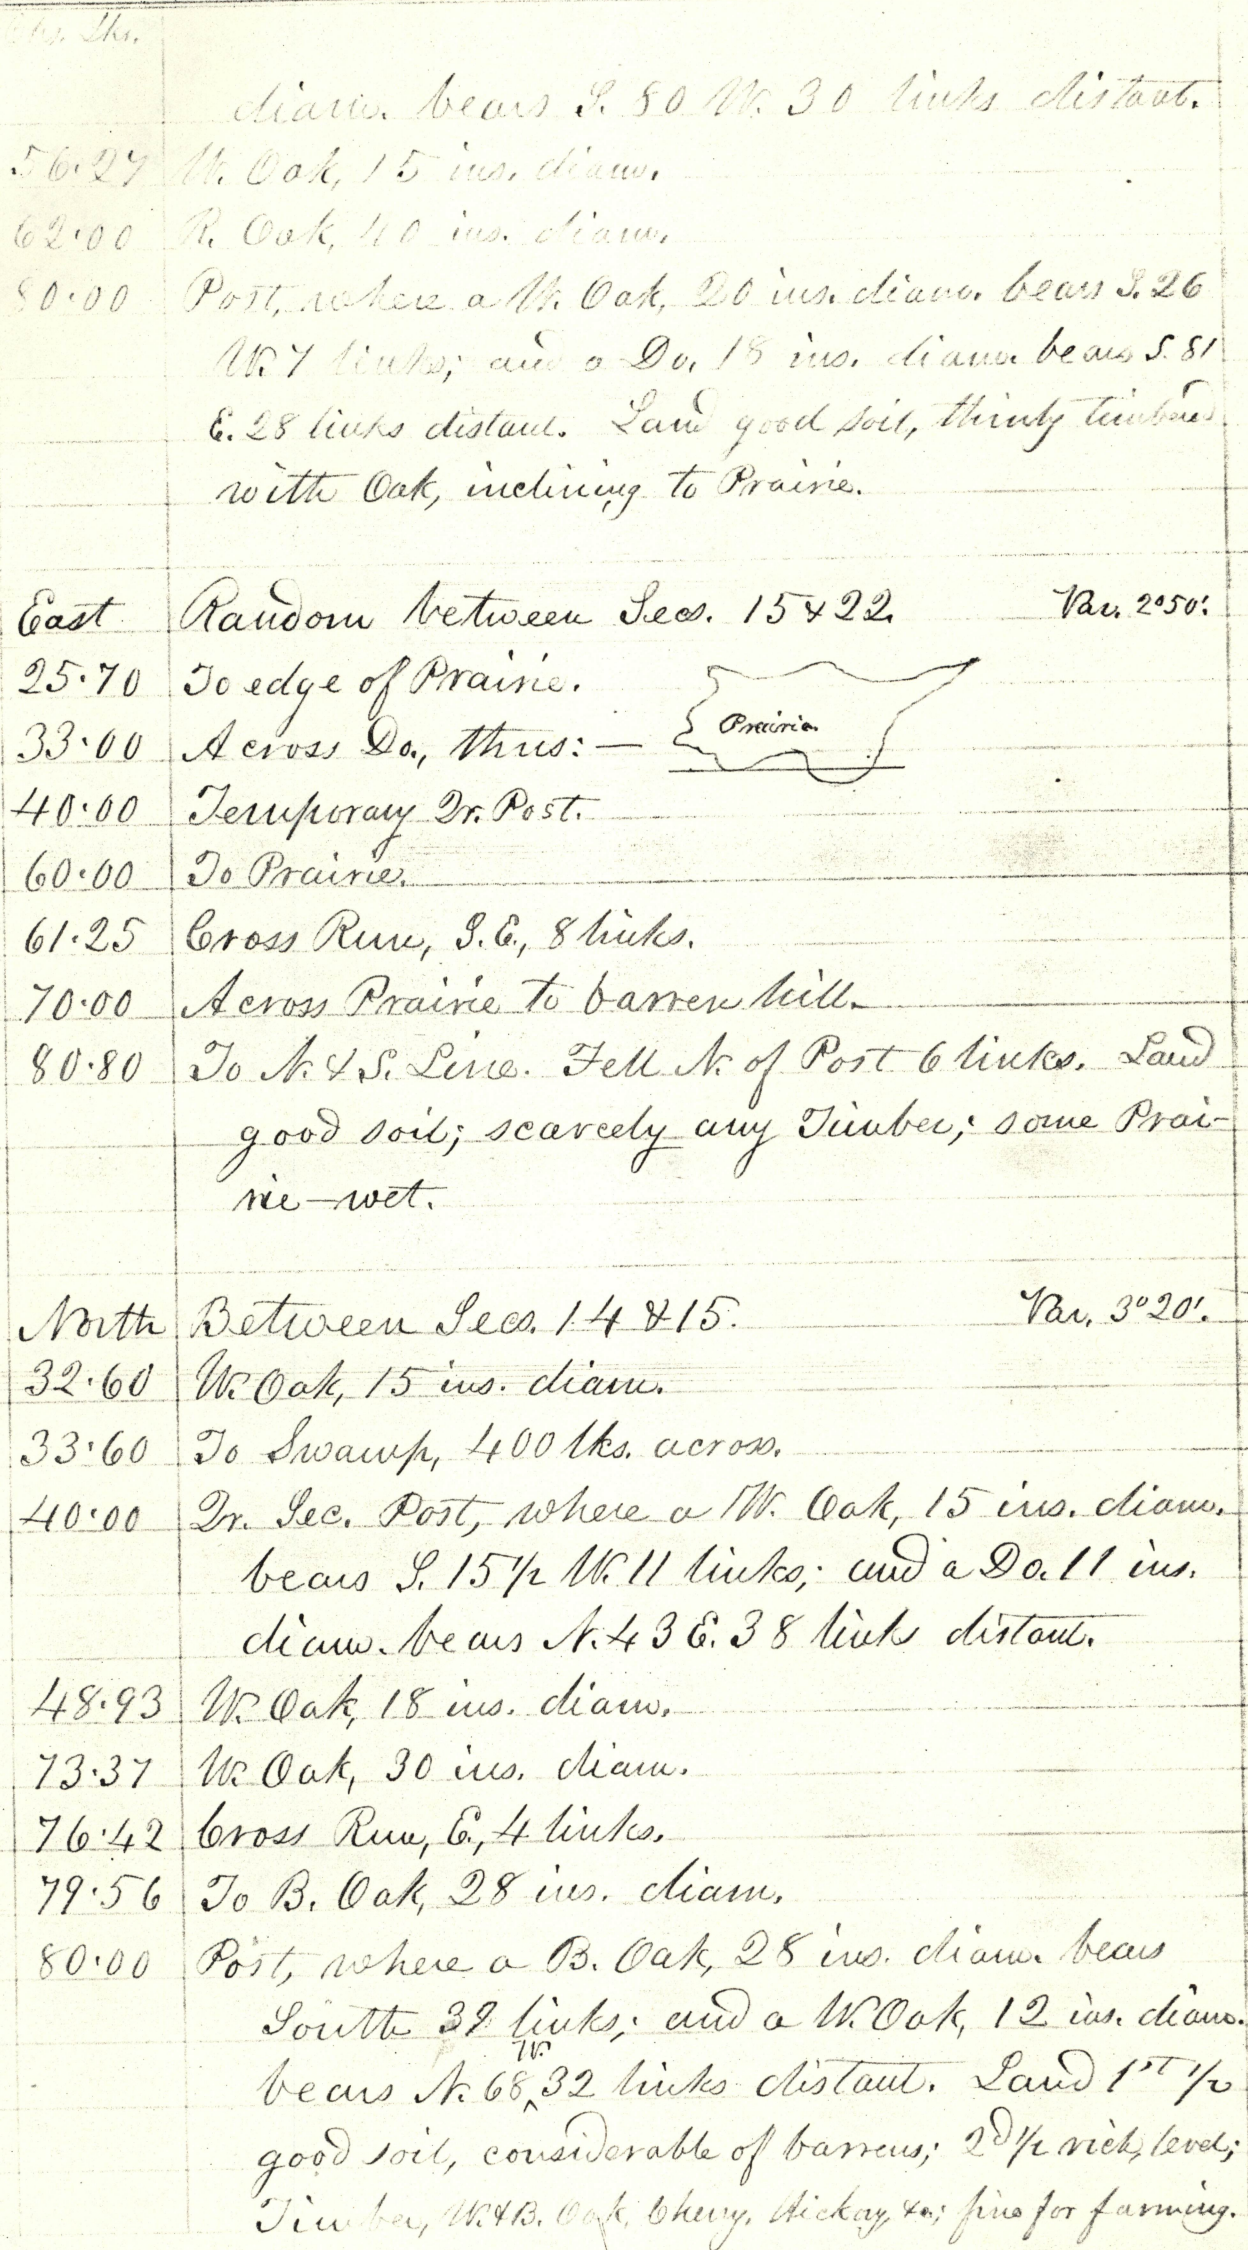 Chs. Lks.
diam. bears S. 80 W. 30 links distant.
56.27 W. Oak, 15 ins. diam.
62.00 R. Oak, 40 ins. diam.
80.00 Post, where a W. Oak, 20 ins. diam. bears S. 26
W. 7 links; and a Do. 18 ins. diam. bears S. 81
E. 28 links distant. Land good soil, thinly timbered
with Oak, inclining to Prairie.
East Random between Secs. 15 & 22. Var. 2°50'.
25.70 To edge of Prairie.
Prairie
33.00 Across Do., thus:—
40.00 Temporary Qr. Post.
60.00 To Prairie.
61.25 Cross Run, S.E., 8 links.
70.00 Across Prairie to barren hill.
80.80 To N. & S. Line. Fell N. of Post 6 links. Land
good soil; scarcely any Timber; some Prai-
rie—wet.
North Between Secs. 14 & 15. Var. 3°20'.
32.60 W. Oak, 15 ins. diam.
33.60 To Swamp, 400 lks. across.
40.00 Qr. Sec. Post, where a W. Oak, 15 ins. diam.
bears S. 15 1/2 W. 11 links; and a Do. 11 ins.
diam. bears N. 43 E. 38 links distant.
48.93 W. Oak, 18 ins. diam.
73.37 W. Oak, 30 ins. diam.
76.42 Cross Run, E., 4 links.
79.56 To B. Oak, 28 ins. diam.
80.00 Post, where a B. Oak, 28 ins. diam. bears
South links; and a W. Oak, 12 ins. diam.
bears N. 68 W. 32 links distant. Land 1st 1/2
good soil, considerable of barrens; 2d 1/2 rich, level;
Timber, W. & B. Oak, Cherry, Hickory, &c; fine for farming.